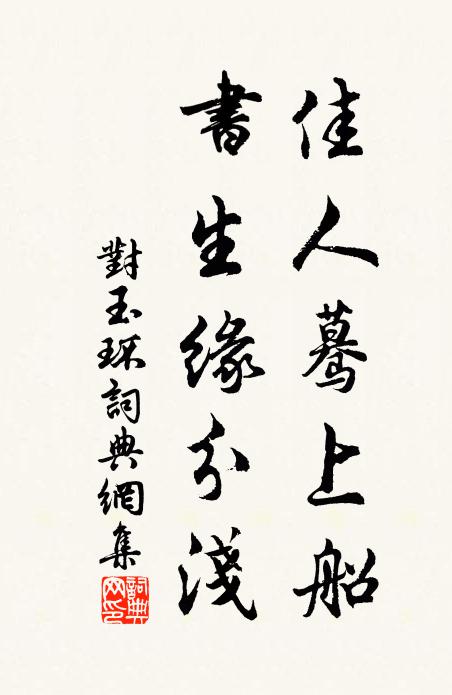 佳人驀上船
書生緣分淺
對玉環詞典網集
詞典网印